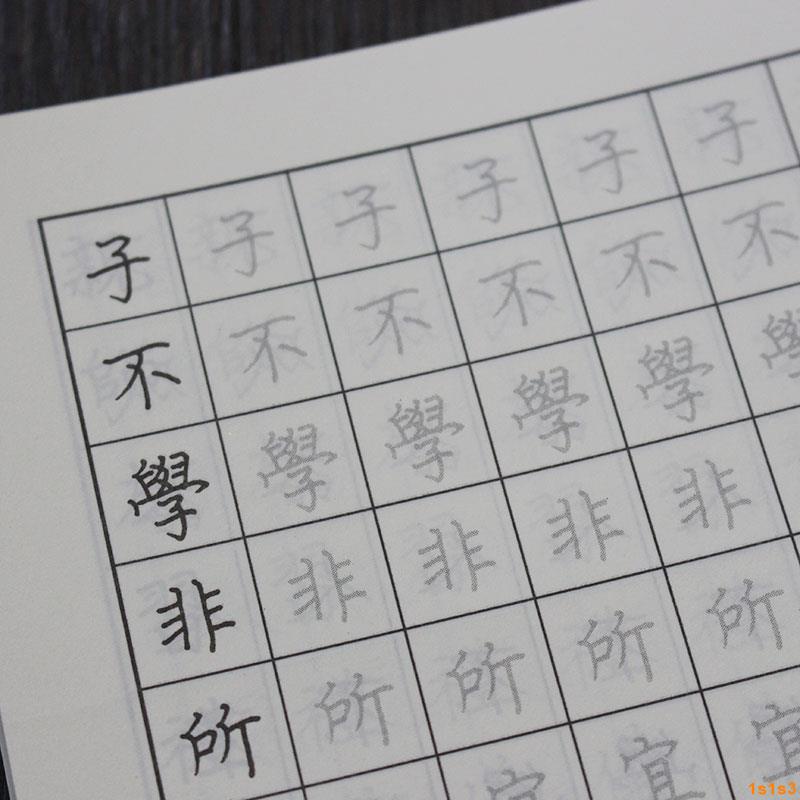 子子子子子子
不不不不不不
學學學學學學
非非非非非
所所所所所
宜宜宜
1s1s3